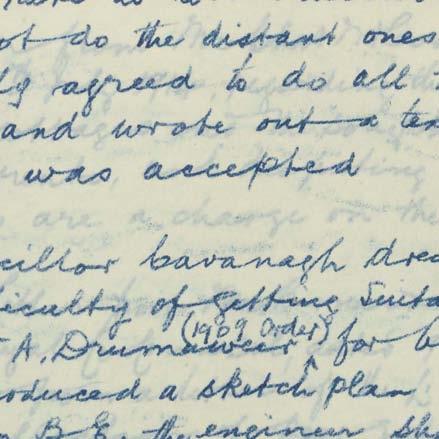 ot do the distant ones
ly agreed to do all
and wrote out a ten
was accepted
cillor Cavanagh drew
ficulty of getting Suita
(1909 Order)
A. Drumaweir ^ for b
roduced a sketch plan
B.E. the engineer sh